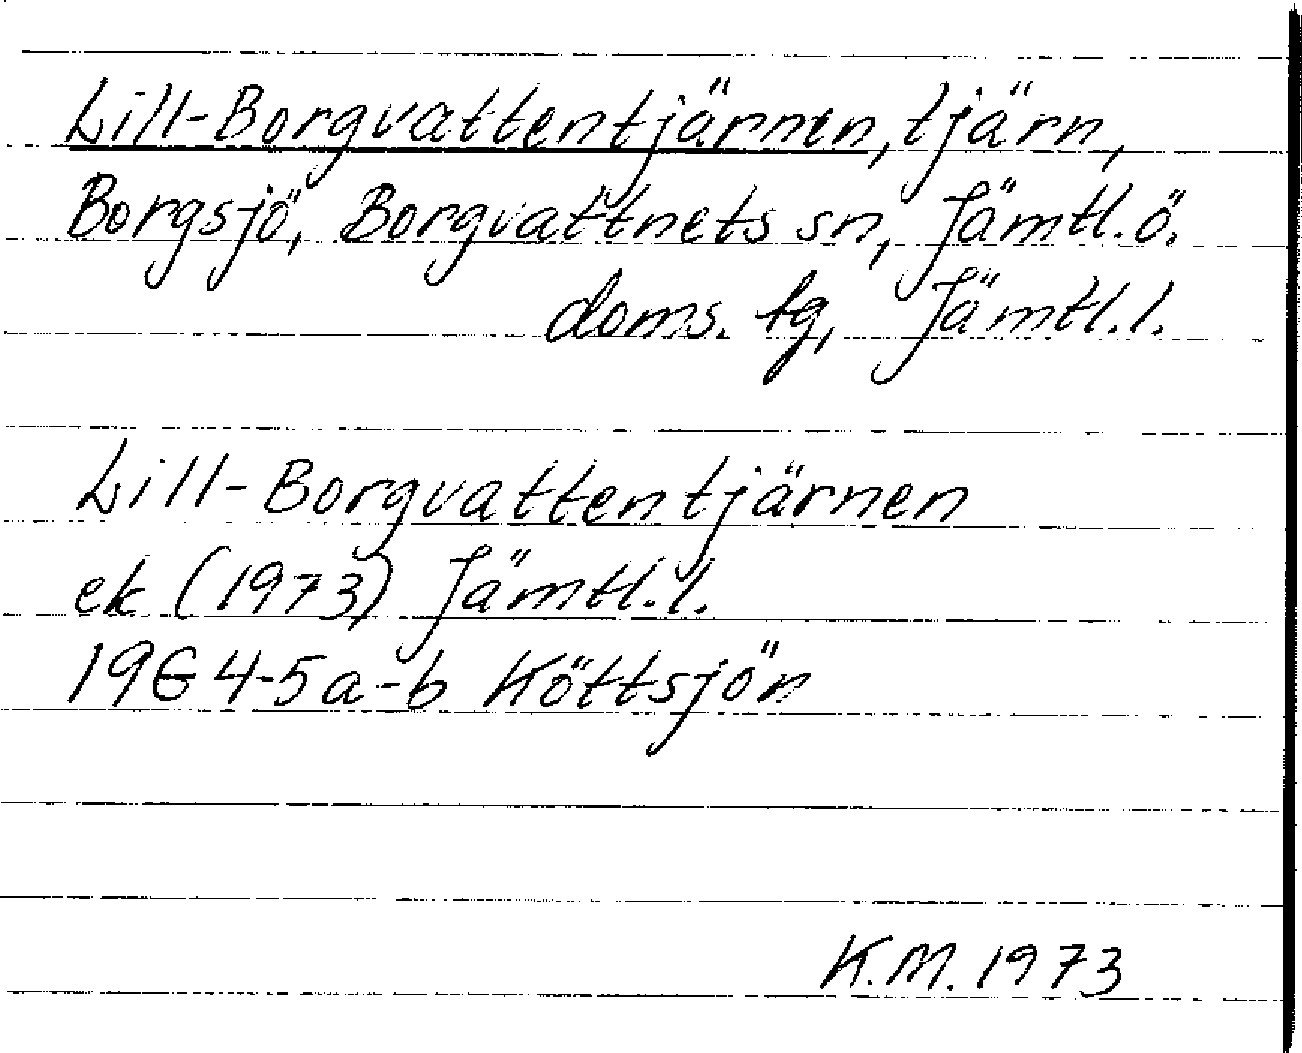 Lill-Borgvattentjärnen, tjärn,
Borgsjö, Borgvattnets sn, Jämtl. ö.
doms. tg, Jämtl. l.
Lill-Borgvattentjärnen
ek (1973) Jämtl. l.
19G 4-5a-b Köttsjön
K.M. 1973